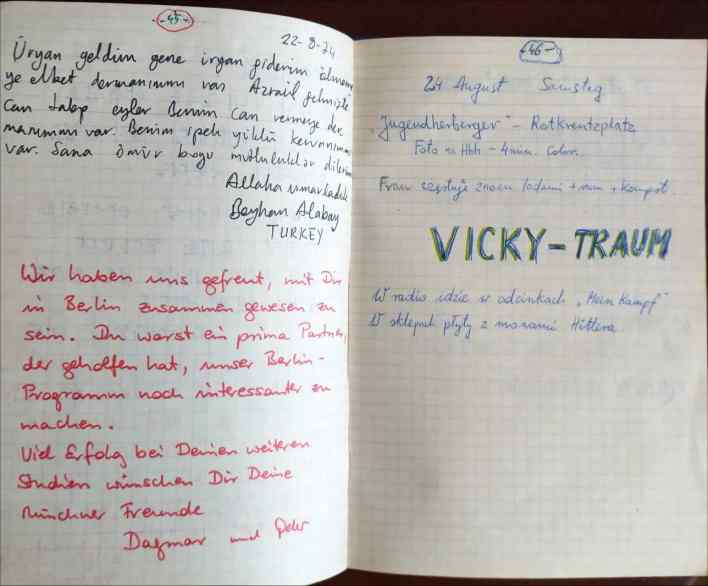 -45-
22-8-74
Üryan geldim gene üryan giderim ölmem
ye elbet dermanımm var Azrail gelmiş
Can talep eyler Benim Can vermeye der
manımm var. Benim ipek yüklü kervanımm
var. Sana ömür boyu mutluluklar dilerim
Allaha ısmarladık
Beyhan Alabay
TURKEY
Wir haben uns gefreut, mit Dir
in Berlin zusammen gewesen zu
sein. Du warst ein prima Partner,
der geholfen hat, unser Berlin-
Programm noch interessanter zu
machen.
Viel Erfolg bei Deinen weiteren
Studien wünschen Dir Deine
Münchner Freunde
Dagmar und
-46-
24 August Samstag
"Jugendherberger" - Rotkreutzplatz
Foto na Hbh - 4 min. Color.
Frau częstuje znowu lodami + rum + kompot.
VICKY-TRAUM
W radio idzie w odcinkach "Mein Kampf"
W sklepach płyty z mowami Hitlera